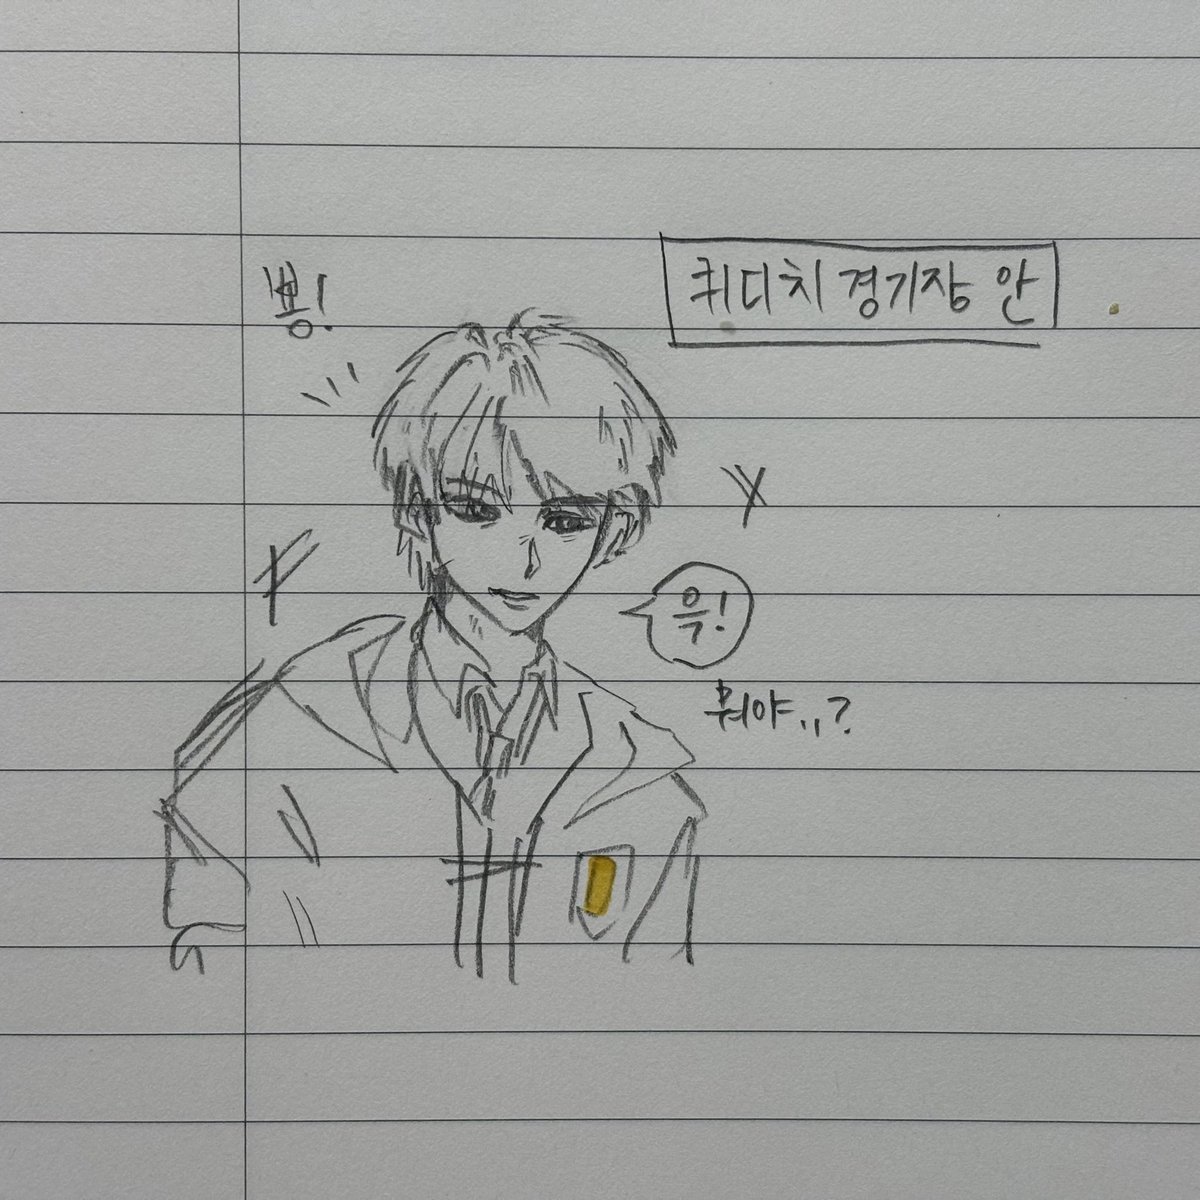 퀴디치 경기장 안
뿅!
윽!
뭐야,,?